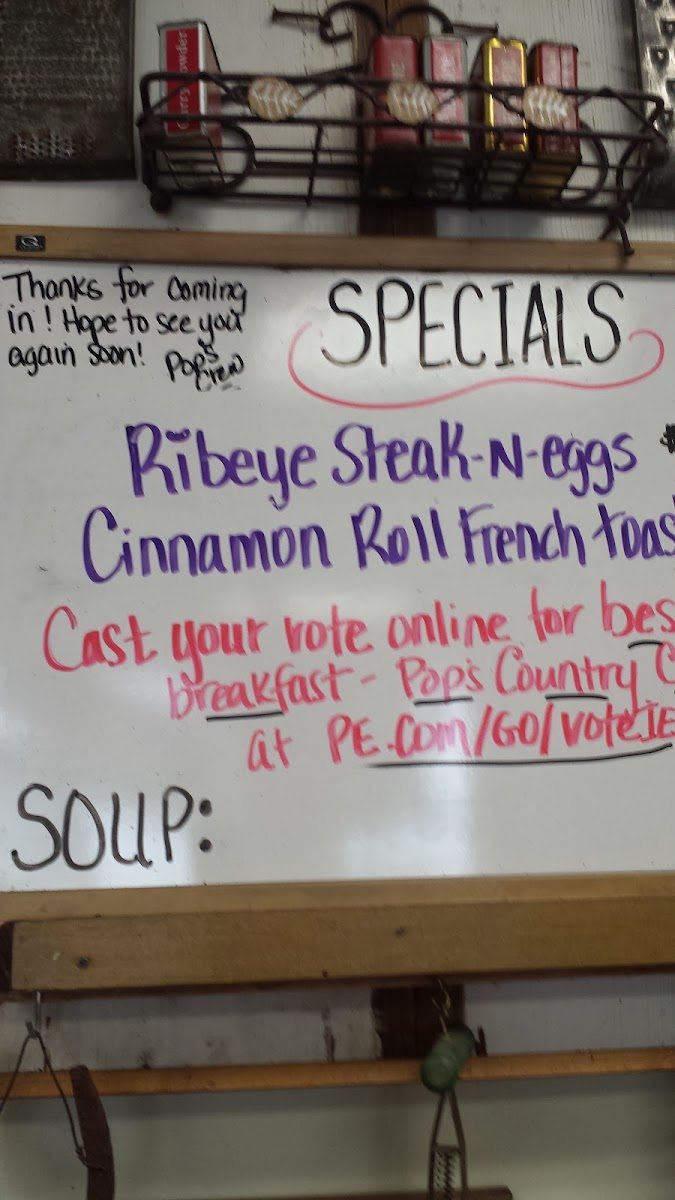 Curry Powder
Q
Thanks for coming
in! Hope to see you
again soon! Pop's
Crew
SPECIALS
Ribeye Steak-N-eggs
Cinnamon Roll French toas
Cast your vote online for bes
breakfast - Pop's Country C
at PE.COM/GO/VOTEIE
SOUP: